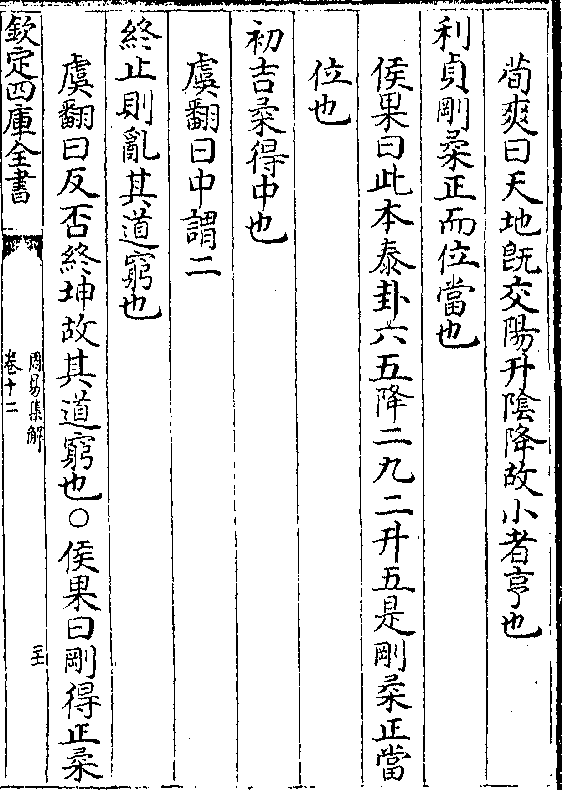 荀爽曰天地既交陽升陰降故小者亨也
利貞剛柔正而位當也
侯果曰此本泰卦六五降二九二升五是剛柔正當
位也
初吉柔得中也
虞翻曰中謂二
終止則亂其道窮也
虞翻曰反否終坤故其道窮也○侯果曰剛得正柔
欽定四庫全書
周易集解
卷十二